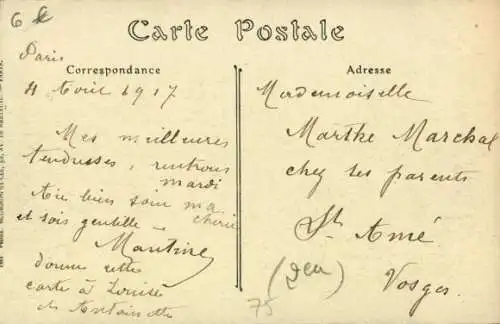 6 €
Carte Postale
Correspondance
Adresse
Paris
4 Août 1917
Mes meilleures
tendresses, rentrons
mardi
Aie bien soin ma
chérie
et sois gentille —
Martine
donne cette
carte à Louise
de Antoinette
Mademoiselle
Marthe Marchal
chez ses parents
St Amé
Vosges
75